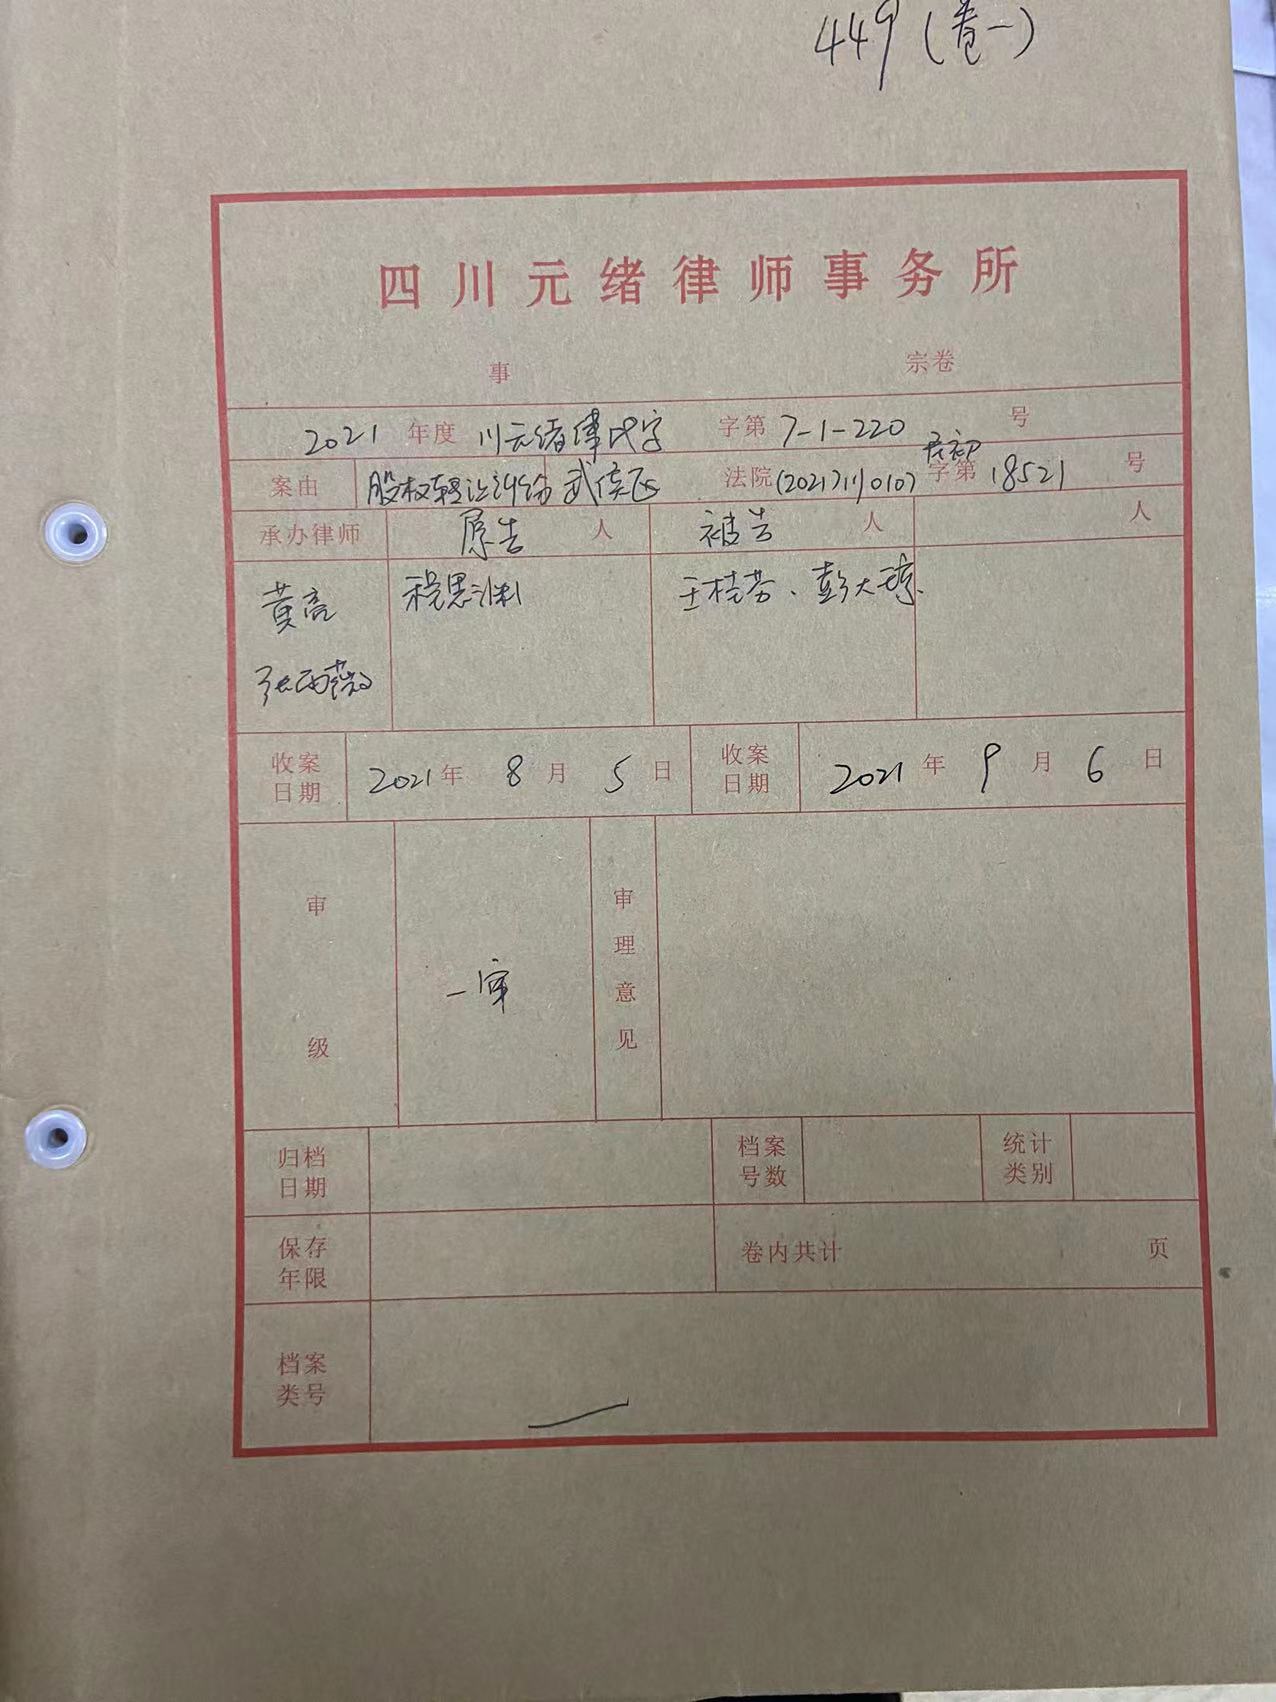 449(卷一)
四川元绪律师事务所
事 宗卷
2021 年度 川元绪律民字 字第 7-1-220 号
案由 股权转让纠纷 武侯区 法院 (2021)川0107 民初 字第 18521 号
承办律师 原告 人 被告 人 人
黄亮 程思渊 王桂芬、彭大琼
张雨薇
收案日期 2021 年 8 月 5 日 收案日期 2021 年 9 月 6 日
审级 一审 审理意见
归档日期 档案号数 统计类别
保存年限 卷内共计 页
档案类号